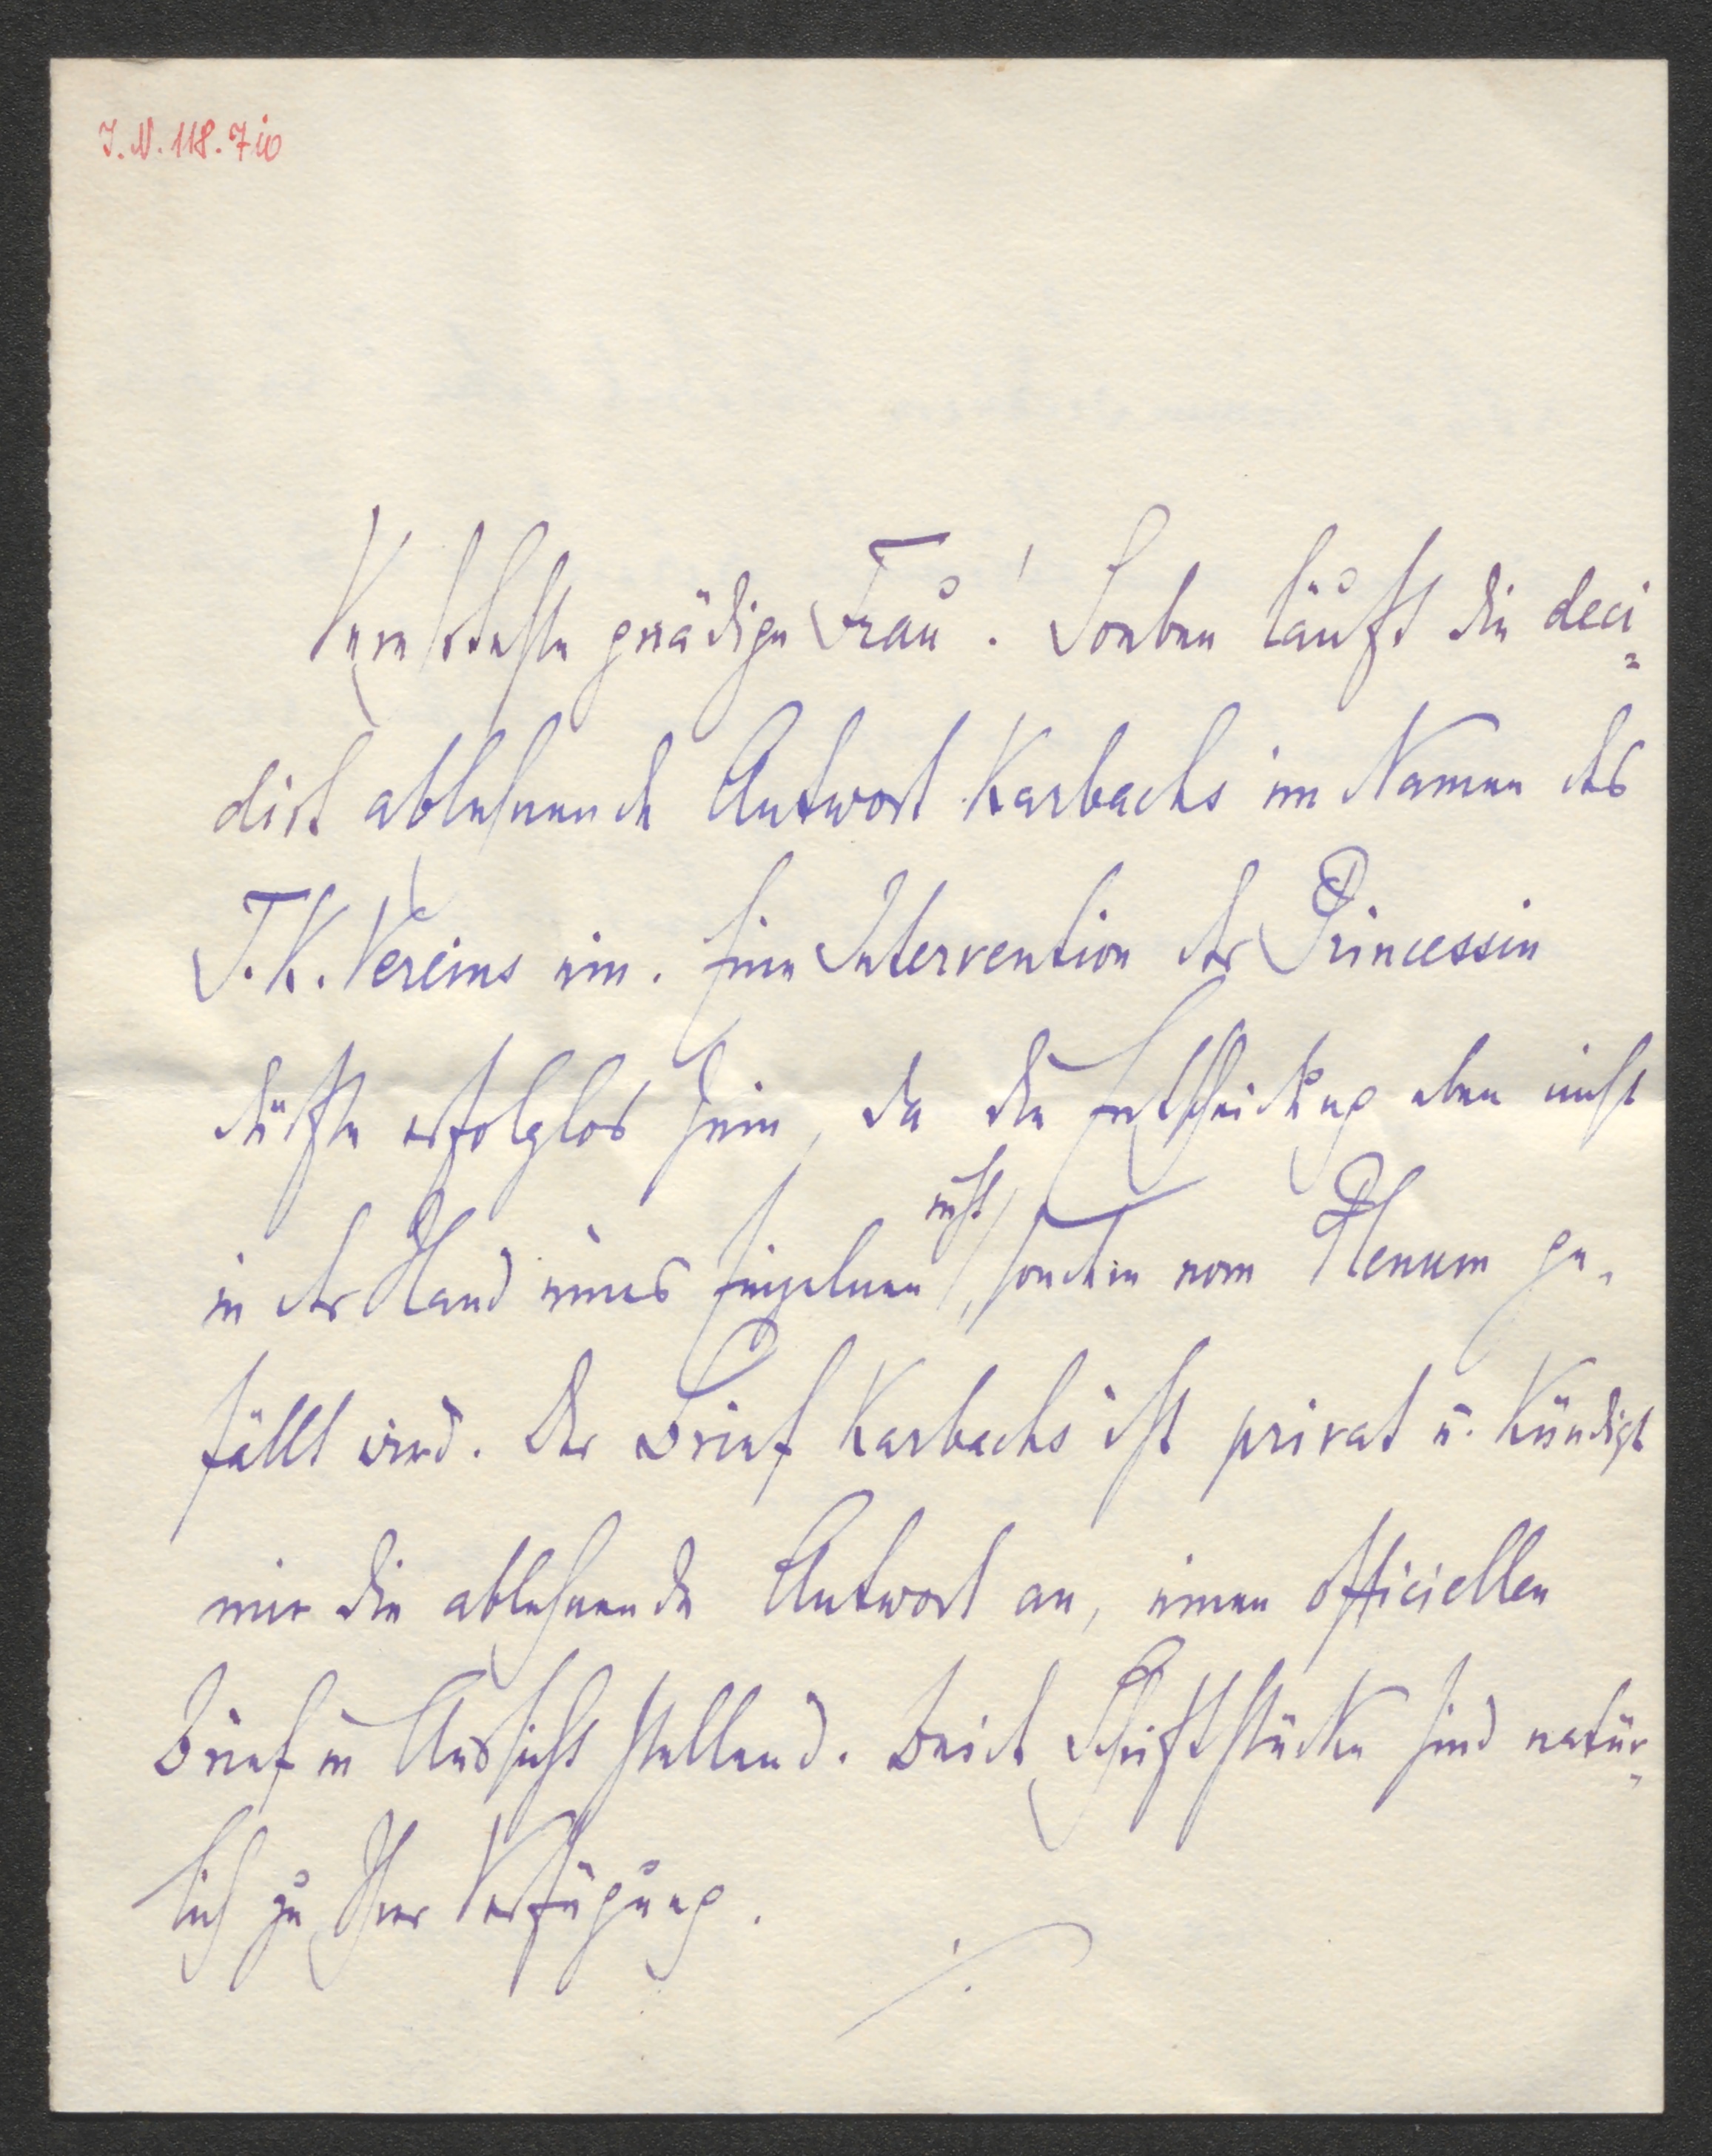 I. N. 118.710
Verehrteste gnädige Frau! Soeben läuft die deci=
dirt ablehnende Antwort Karbachs im Namen des
T. K. Vereins ein. Eine Intervention der Princessin
dürfte erfolglos sein, da die Entscheidung eben nicht
in der Hand eines Einzelnen ruht, sondern vom Plenum ge-
fällt wird. Der Brief Karbachs ist privat u. kündigt
mir die ablehnende Antwort an, einen officiellen
Brief in Aussicht stellend. Beide Schriftstücke sind natür=
lich zu Ihrer Verfügung.
./.